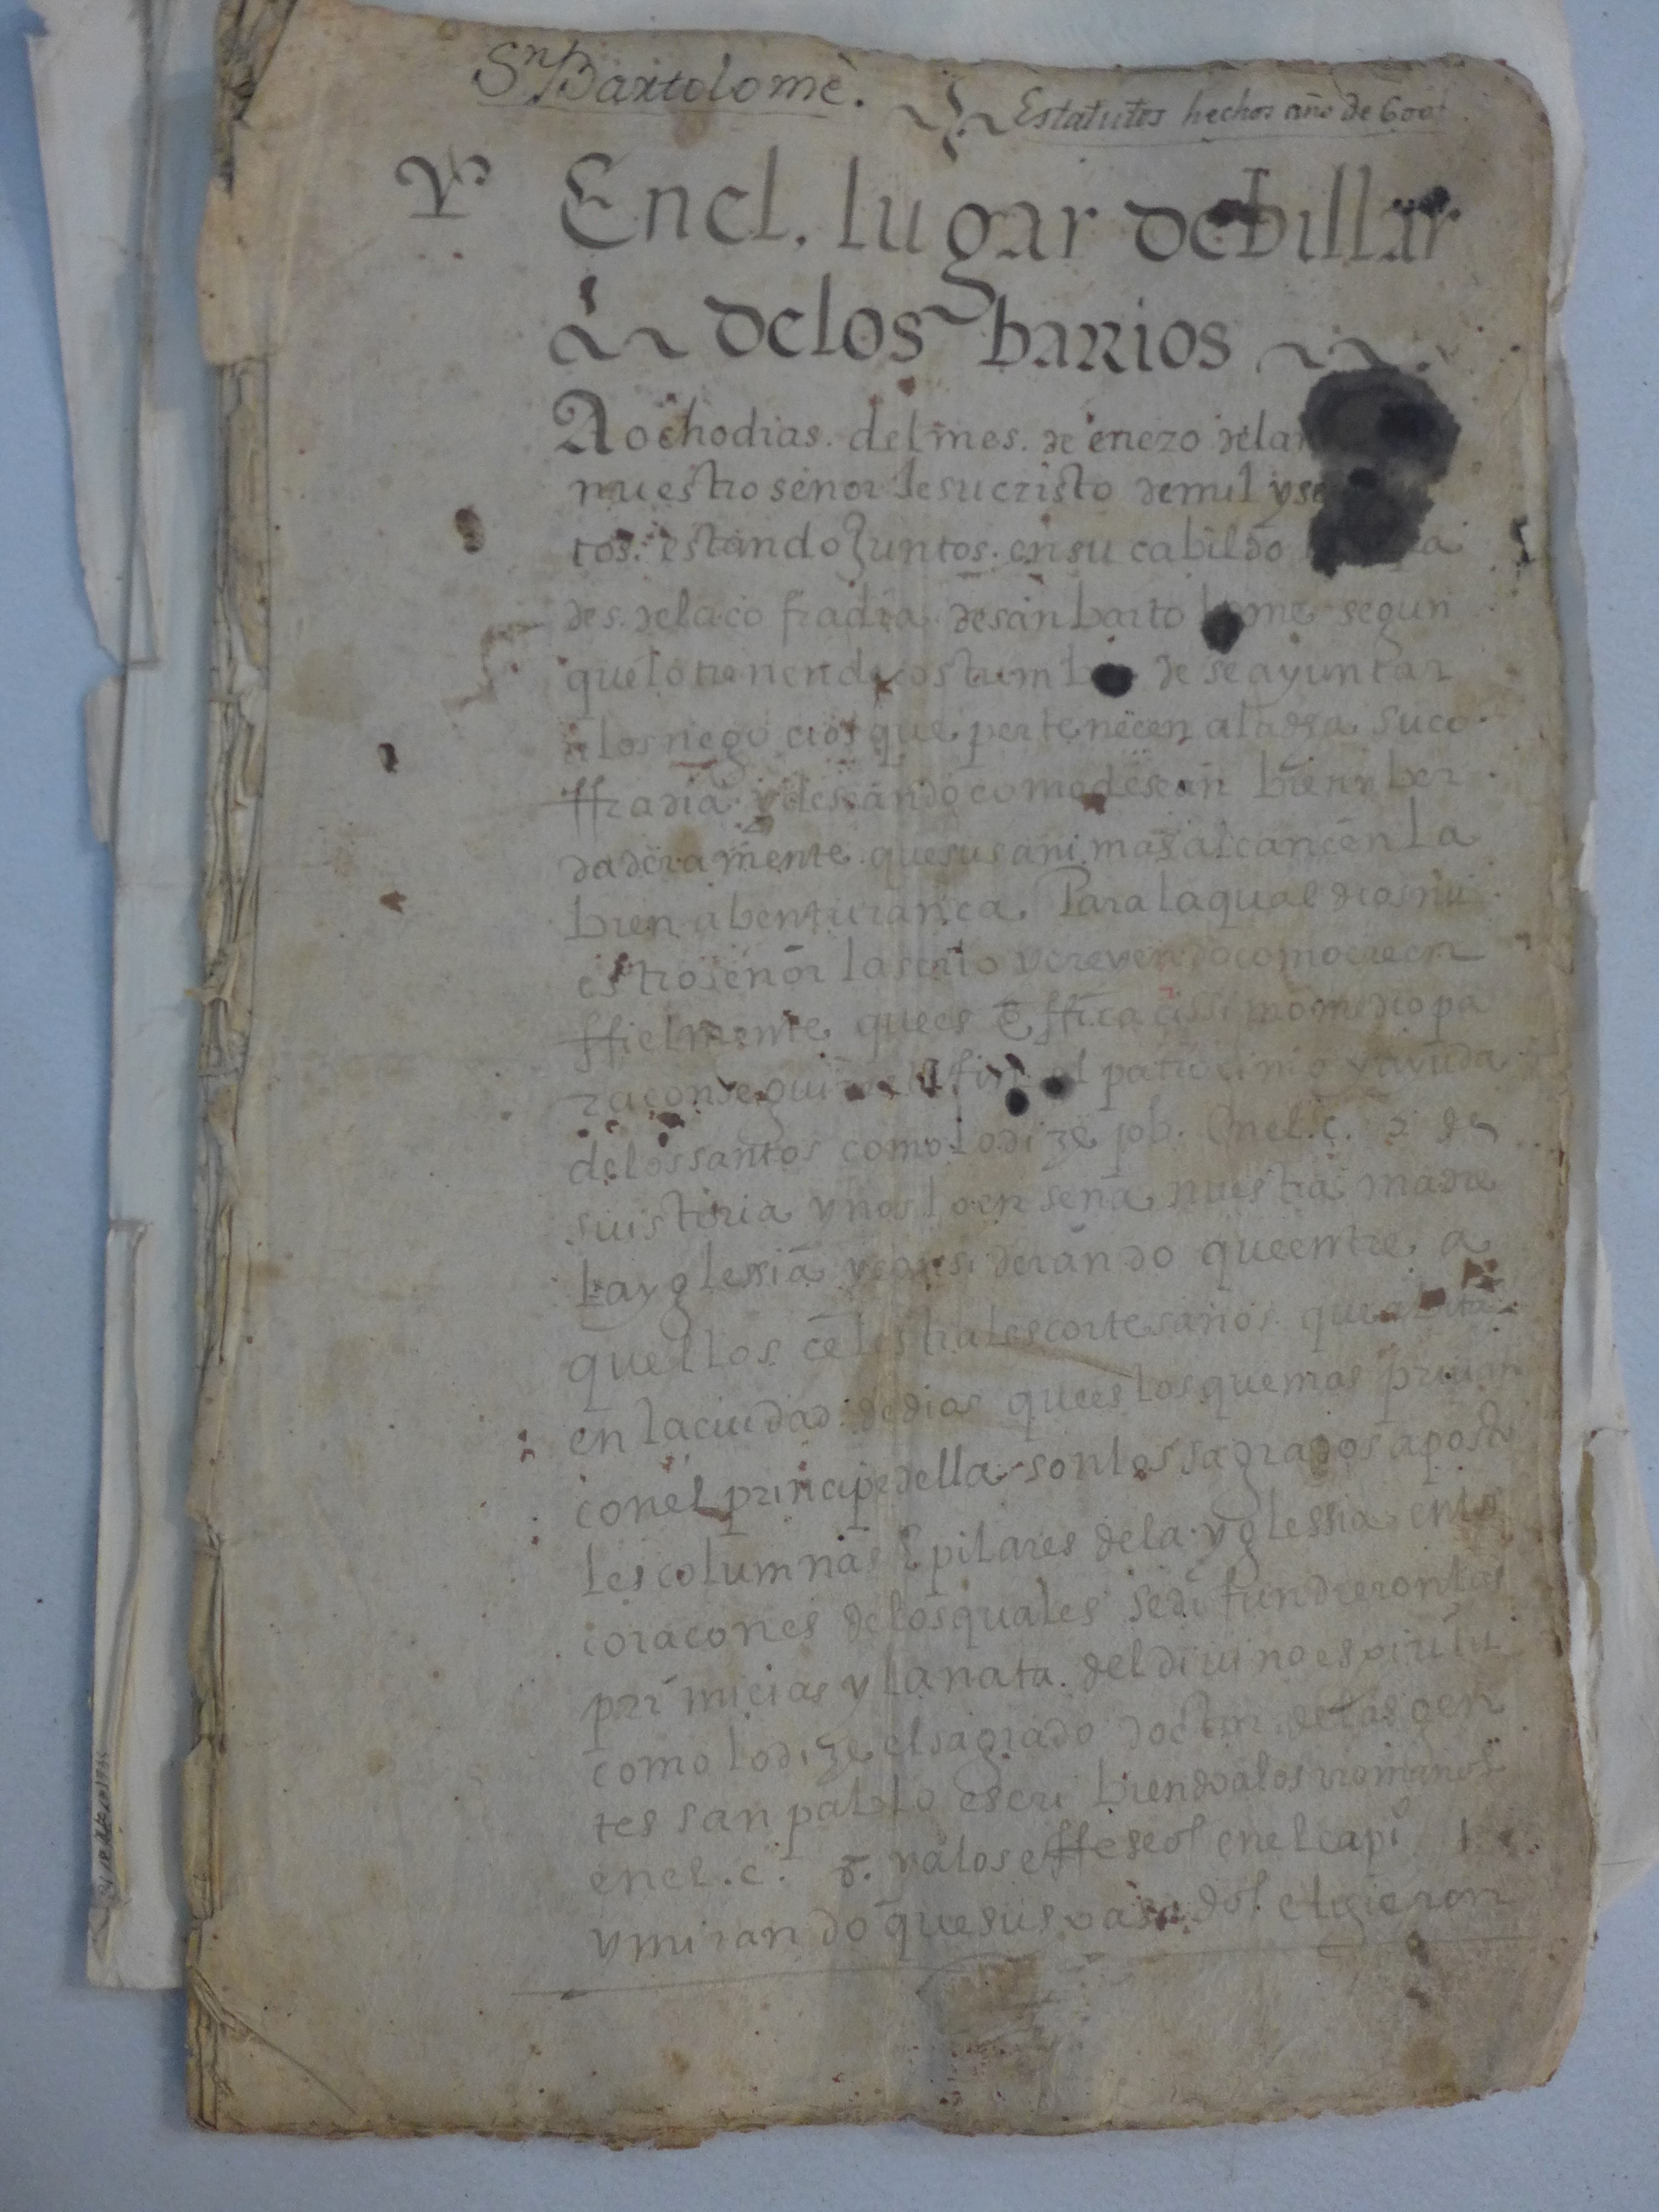 Sn Bartolomè.
Estatutos hechos año de 600
Enel. lugar debillar
delos barrios
A ochodias. del mes. de enero dela
nuestro señor Jesucristo demil yse
tos. estando Juntos. ensu cabildo
des. dela cofradia desanbarto lome segun
quelo tienen de costumb de se ayuntar
a los negocios que pertenecen aladha suco
ffradia y deseando como desean bien y ber
daderamente quesus animas alcancen la
bien abenturança. Para laqual dios nu
estro señor las crio y creyendo como creen
ffielmente quees Efficacissimo medio pa
ra conseguir el fin el patrocinio y ayuda
delos santos como lo dize job. Enel. c. 5 de
suistoria y nos lo enseña nuestra madre
La yglessia y considerando que entre a
quellos celestiales cortesanos que
en la ciudad de dios quees los que mas privan
conel principe della son los sagrados aposto
les columnas E pilares dela yglessia en los
coraçones delos quales se difundieron las
primicias y la nata. del divino espiritu
como lo dize el sagrado doctor de las gen
tes san pablo escribiendo alos rromanos
enel. c. 8. y alos effeseos enel capi 1
y mirando que sus pasados eligieron